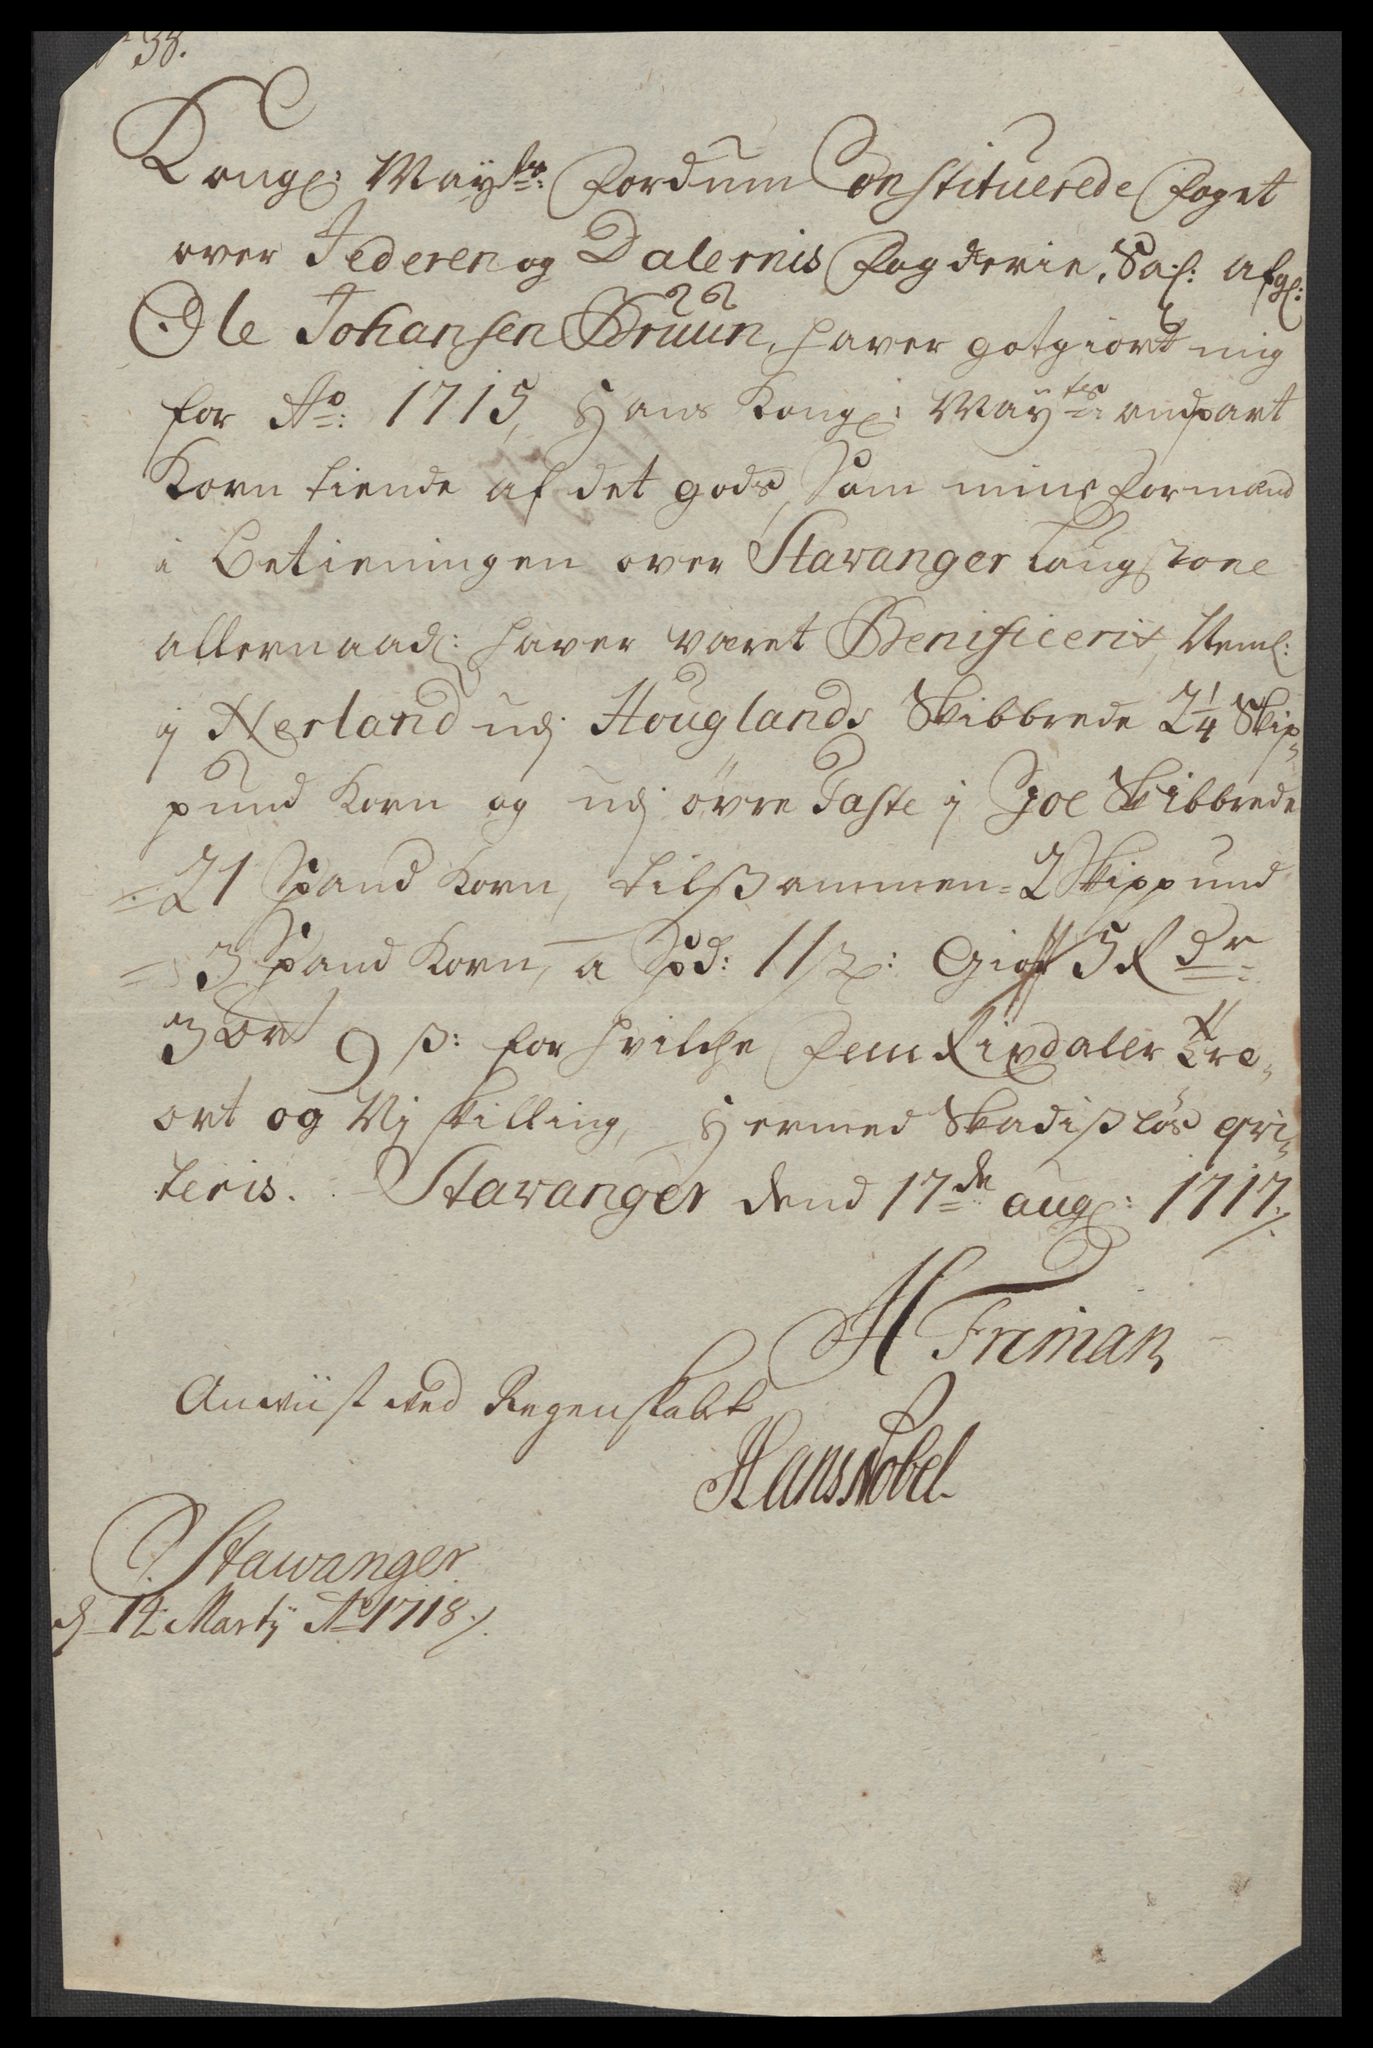 38.
Kongl: Mayts: fordum Constituerede foget
over Jederen og Dalernis fogderie, Sal: afg:
Ole Johansen Bruun, haver gotgiort mig
for Ao: 1715, Hans Kongl: Mayts: anpart
Korn tiende af det gods, Som mine formænd
i betieningen over Stavanger Laugstoel
allernaad: haver været Benificerit, Neml:
i Nerland udj Houglands Skibbrede 2 1/4 Skip-
pund Korn og udj övre Taste i Goe Skibbrede
21 Spand Korn, tilsammen 2 Skippund
3 Spand Korn, a Spd: 11 ß: Giør 5 Rdr
3 ort 9 ß: for hvilche fem Rixdaler tre
ort og Nj skilling, Hermed Skadisløs qvi-
teris. Stavanger dend 17de aug: 1717.
H Friman
Anviist ved Regenskabet
Hans Nobel
Stawanger
d 14 Martij Ao 1718